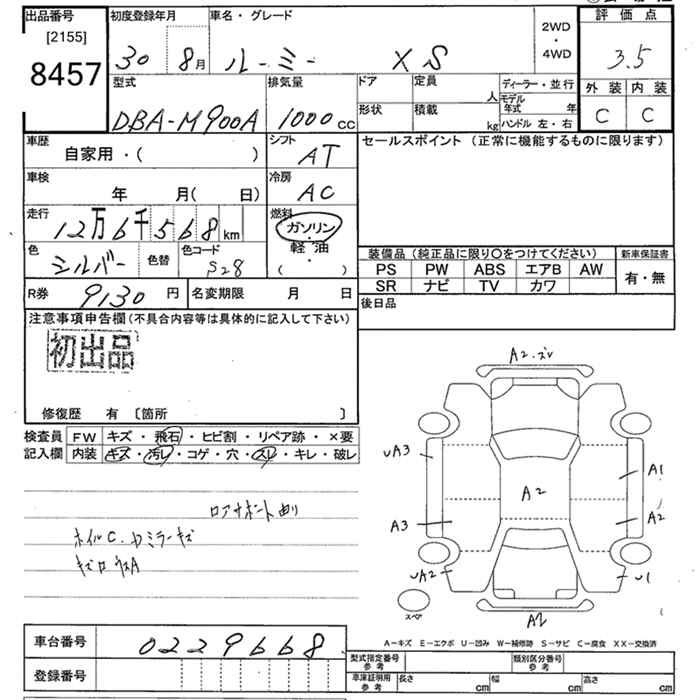 出品番号
[2155]
8457
初度登録年月
30 8月
車名・グレード
ルーミー XS
2WD
・
4WD
評価点
3.5
外装 内装
C C
型式
DBA-M900A
排気量
1000cc
ドア
定員
人
形状
積載
kg
ディーラー・並行
モデル年式 年
ハンドル 左・右
車歴
自家用・( )
シフト
AT
セールスポイント (正常に機能するものに限ります)
車検
年 月( 日)
冷房
AC
走行
12万6千568km
燃料
ガソリン
・
軽・油
( )
色
シルバー
色替
色コード
S28
装備品(純正品に限り〇をつけてください)
新車保証書
PS PW ABS エアB AW
有・無
SR ナビ TV カワ
R券 9,130円
名変期限 月 日
後日品
注意事項申告欄(不具合内容等は具体的に記入して下さい)
初出品
修復歴 有 〔箇所 〕
検査員
記入欄
FW キズ・飛石・ヒビ割・リペア跡・×要
内装 キズ・汚レ・コゲ・穴・スレ・キレ・破レ
ロアサポート曲り
ホイルC.
ミラーキズ
A2.ズレ
UA3
A1
A2
A3
A2
UA2
U1
スペア
A2
A-キズ E-エクボ U-凹み W-補修跡 S-サビ C-腐食 XX-交換済
車台番号
0229668
登録番号
型式指定番号
参考
類別区分番号
参考
車庫証明用
参考
長さ cm
幅 cm
高さ cm